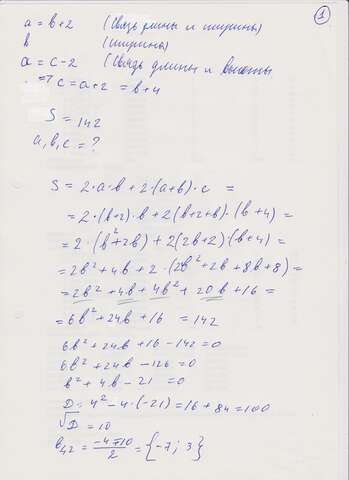 1
a = b+2 (связь длины и ширины)
b (ширина)
a = c-2 (связь длины и высоты
=> c = a+2 = b+4
S = 142
a, b, c = ?
S = 2·a·b + 2·(a+b)·c =
= 2·(b+2)·b + 2(b+2+b)·(b+4) =
= 2·(b²+2b) + 2(2b+2)(b+4) =
= 2b²+4b + 2·(2b²+2b+8b+8) =
= 2b² + 4b + 4b² + 20b + 16 =
= 6b² + 24b + 16 = 142
6b² + 24b + 16 - 142 = 0
6b² + 24b - 126 = 0
b² + 4b - 21 = 0
D = 4² - 4·(-21) = 16 + 84 = 100
√D = 10
b₁,₂ = (-4∓10)/2 = {-7; 3}